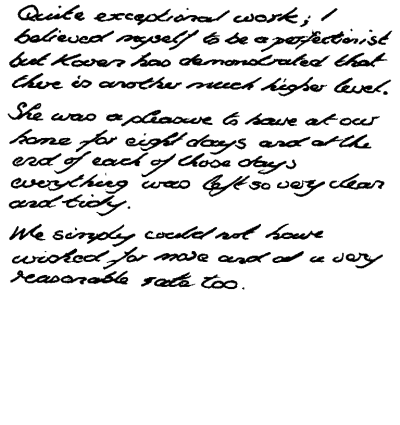 Quite exceptional work; I
believed myself to be a perfectionist
but Karen has demonstrated that
there is another much higher level.
She was a pleasure to have at our
home for eight days and at the
end of each of those days
everything was left so very clean
and tidy.
We simply could not have
wished for more and at a very
reasonable rate too.